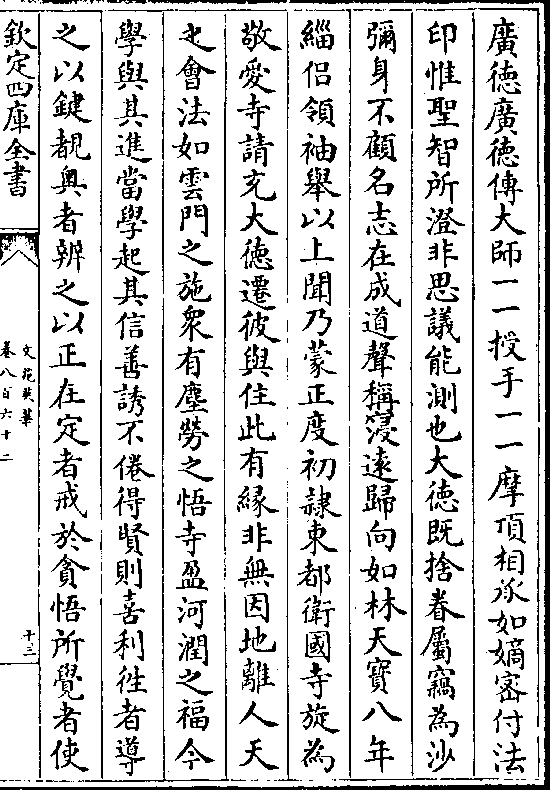 廣德廣德傳大師一一授手一一摩頂相承如嫡密付法
印惟聖智所澄非思議能測也大德既捨眷屬竊為沙
彌身不顧名志在成道聲稱寖遠歸向如林天寶八年
緇侶領袖舉以上聞乃蒙正度初隷東都衛國寺旋為
敬愛寺請充大德遷彼與住此有緣非無因地離人天
之會法如雲門之施衆有塵勞之悟寺盈河潤之福今
學與其進當學起其信善誘不倦得賢則喜利徃者導
之以鍵覩奧者辨之以正在定者戒於貪悟所覺者使
欽定四庫全書
文苑英華
卷八百六十二
十三